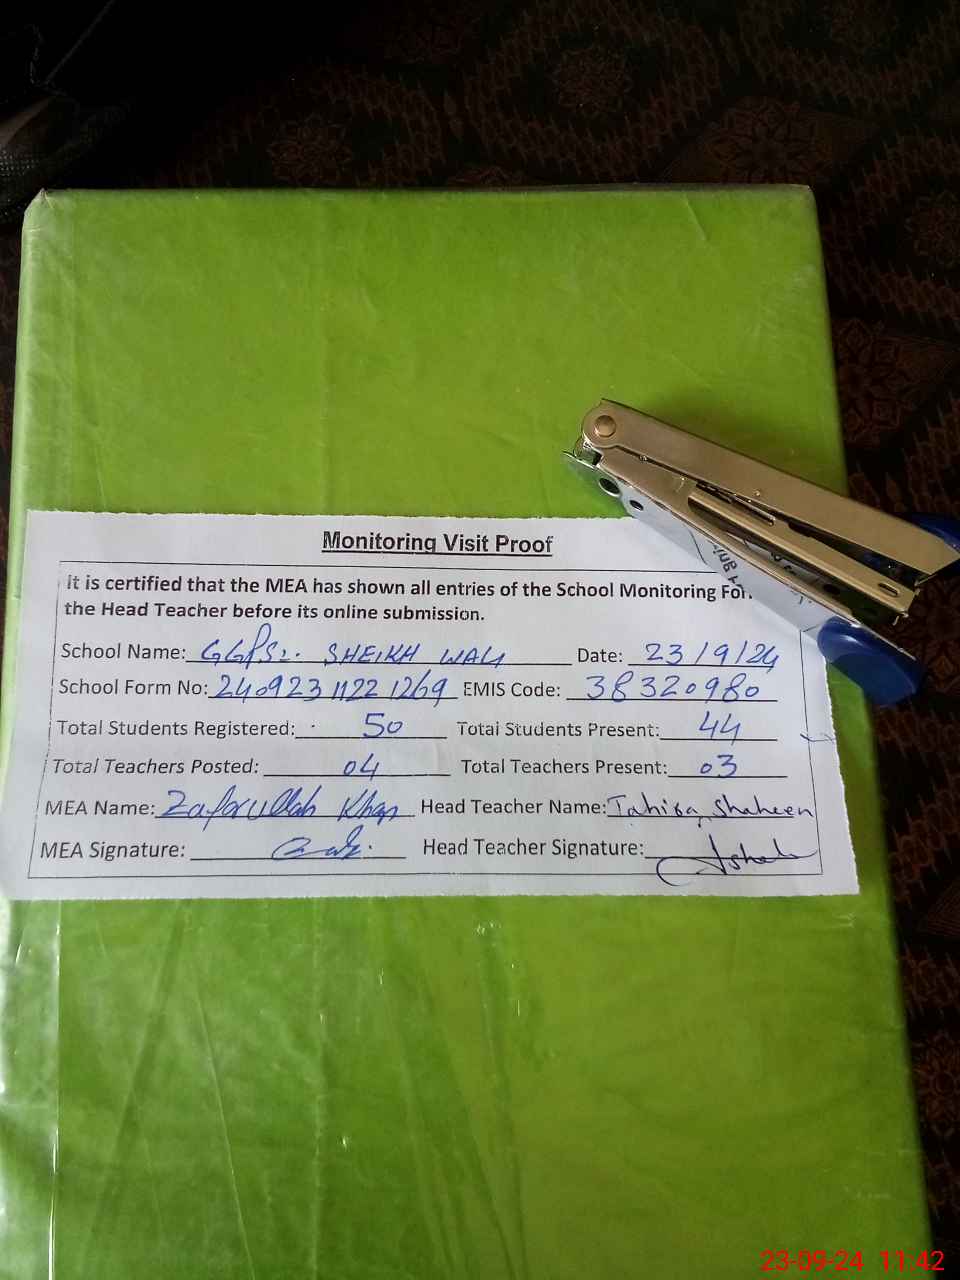 Monitoring Visit Proof
It is certified that the MEA has shown all entries of the School Monitoring For
the Head Teacher before its online submission.
School Name: GGPS. SHEIKH WALI Date: 23/9/24
School Form No: 240923 1122 1269 EMIS Code: 38320980
Total Students Registered: 50 Total Students Present: 44
Total Teachers Posted: 04 Total Teachers Present: 03
MEA Name: Zafarullah Khan Head Teacher Name: Tahira Shaheen
MEA Signature: Head Teacher Signature:
23-09-24 11:42